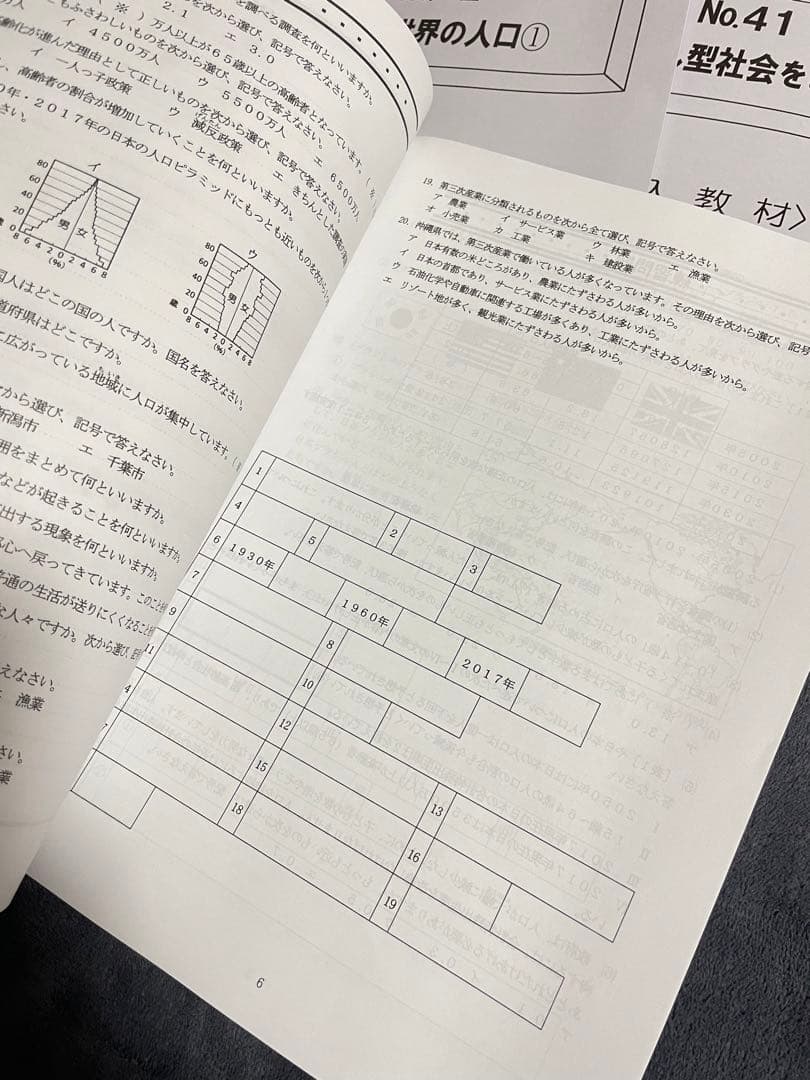 世界の人口①
No.41
型社会を
教材〉
を調べる調査を何といいますか。
2.1 エ 3.0
※）万人以上が６５歳以上の高齢者となっています。
もふさわしいものを次から選び、記号で答えなさい。
イ ４５００万人 ウ ５５００万人 エ ６５００万人
齢化が進んだ理由として正しいものを次から選び、記号で答えなさい。
イ 一人っ子政策 ウ 減反政策 エ きちんとした
、高齢者の割合が増加していくことを何といいますか。
０年・２０１７年の日本の人口ピラミッドにもっとも近いものを次から
さい。
イ
80
60
40
20
0
歳
男 女
8 6 4 2 0 2 4 6 8
(%)
ウ
80
60
40
20
0
歳
男 女
8 6 4 2 0 2 4 6 8
(%)
国人はどこの国の人ですか。国名を答えなさい。
道府県はどこですか。
に広がっている地域に人口が集中しています。
から選び、記号で答えなさい。
新潟市 エ 千葉市
囲をまとめて何といいますか。
などが起きることを何といいますか。
出する現象を何といいますか。
都心へ戻ってきています。
普通の生活が送りにくくなること
な人々ですか。次から選び、
えなさい。
漁業
さい。
業
19. 第三次産業に分類されるものを次から全て選び、記号で答えなさい。
ア 農業 イ サービス業 ウ 林業 エ 漁業
オ 小売業 カ 工業 キ 建設業
20. 沖縄県では、第三次産業で働いている人が多くなっています。その理由を次から選び、記号
ア 日本有数の米どころがあり、農業にたずさわる人が多いから。
イ 日本の首都であり、サービス業にたずさわる人が多いから。
ウ 石油化学や自動車に関連する工場が多くあり、工業にたずさわる人が多いから。
エ リゾート地が多く、観光業にたずさわる人が多いから。
1
2
3
4
5
6 １９３０年 １９６０年 ２０１７年
7
8
9
10
11
12
13
4
15
16
7
18
19
6